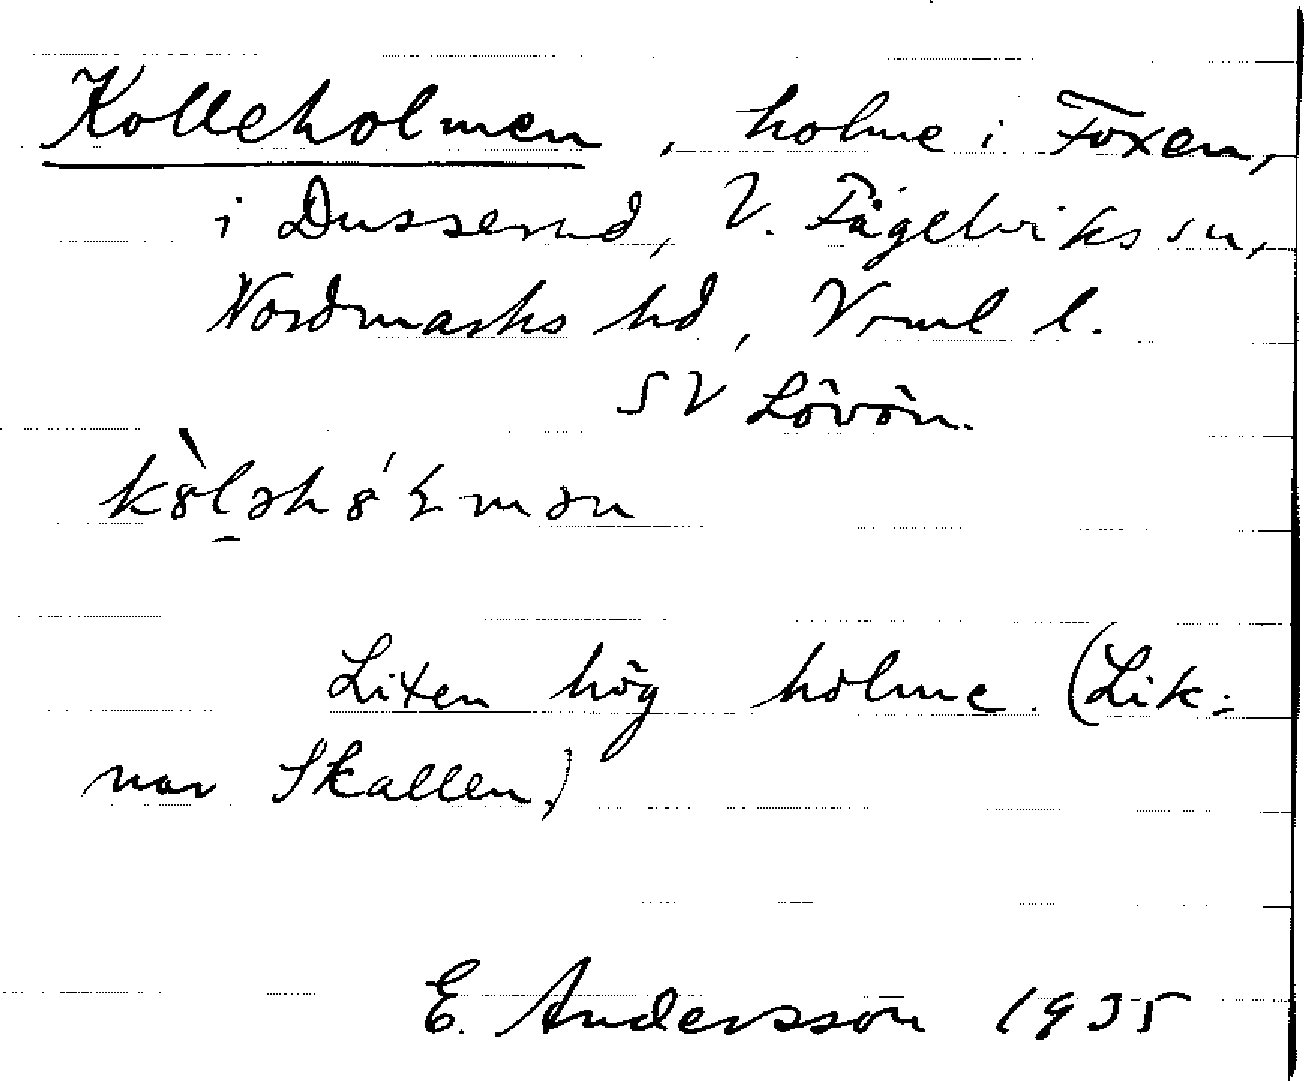 Kolleholmen, holme i Foxen,
i Dusserud, V. Fågelviks sn,
Nordmarks hd, Vrml l.
SV Lövön.
Liten hög holme. (Lik-
nar Skallen.)
E. Andersson 1935